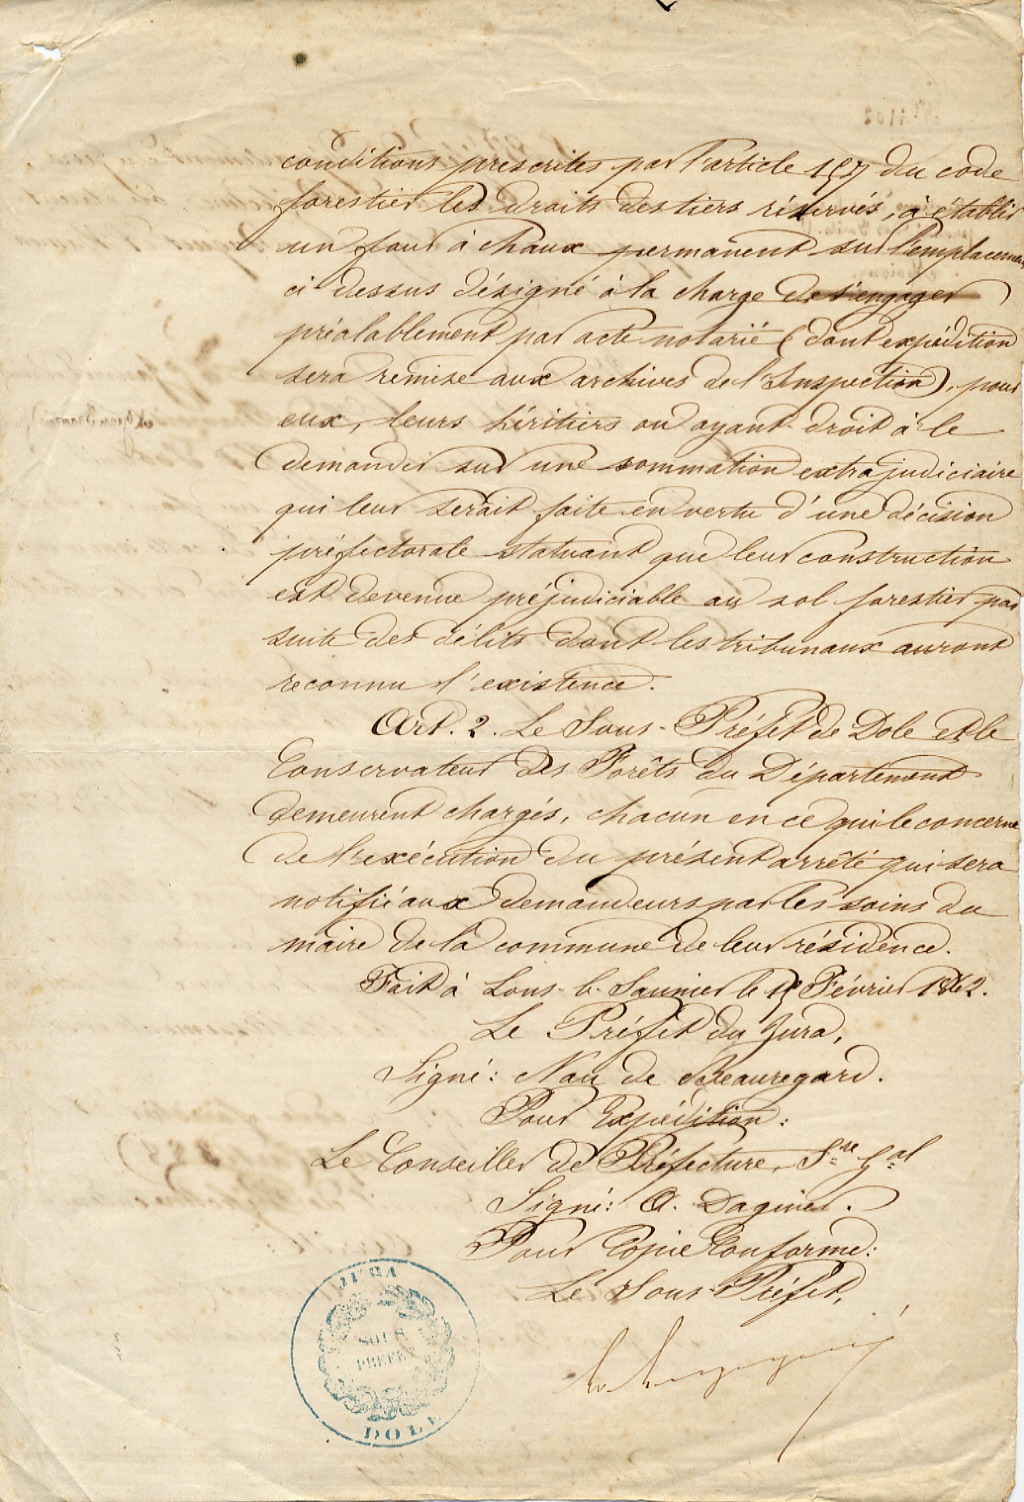 conditions prescrites par l'article 151 du code
forestier les droits des tiers réservés, à établir
un four à chaux permanent sur l'emplacement
ci dessus désigné à la charge de s'engager
préalablement par acte notarié (dont expédition
sera remise aux archives de l'Inspection), pour
eux, leurs héritiers ou ayant droit à le
demander sur une sommation extrajudiciaire
qui leur serait faite en vertu d'une décision
préfectorale statuant que leur construction
est devenue préjudiciable au sol forestier par
suite des délits dont les tribunaux auront
reconnu l'existence.
Art. 2. Le Sous-Préfet de Dole et le
Conservateur des Forêts du Département
demeurent chargés, chacun en ce qui le concerne
de l'exécution du présent arrêté qui sera
notifié aux demandeurs par les soins du
maire de la commune de leur résidence.
Fait à Lons-le-Saunier le Février 1862.
Le Préfet du Jura,
Signé: Nau de Beauregard.
Pour Expédition:
Le Conseiller de Préfecture, Sre Gal
Signé: A. Dagniel.
Pour Copie Conforme:
Le Sous-Préfet,
JURA
SOUS
PREFE
DOLE